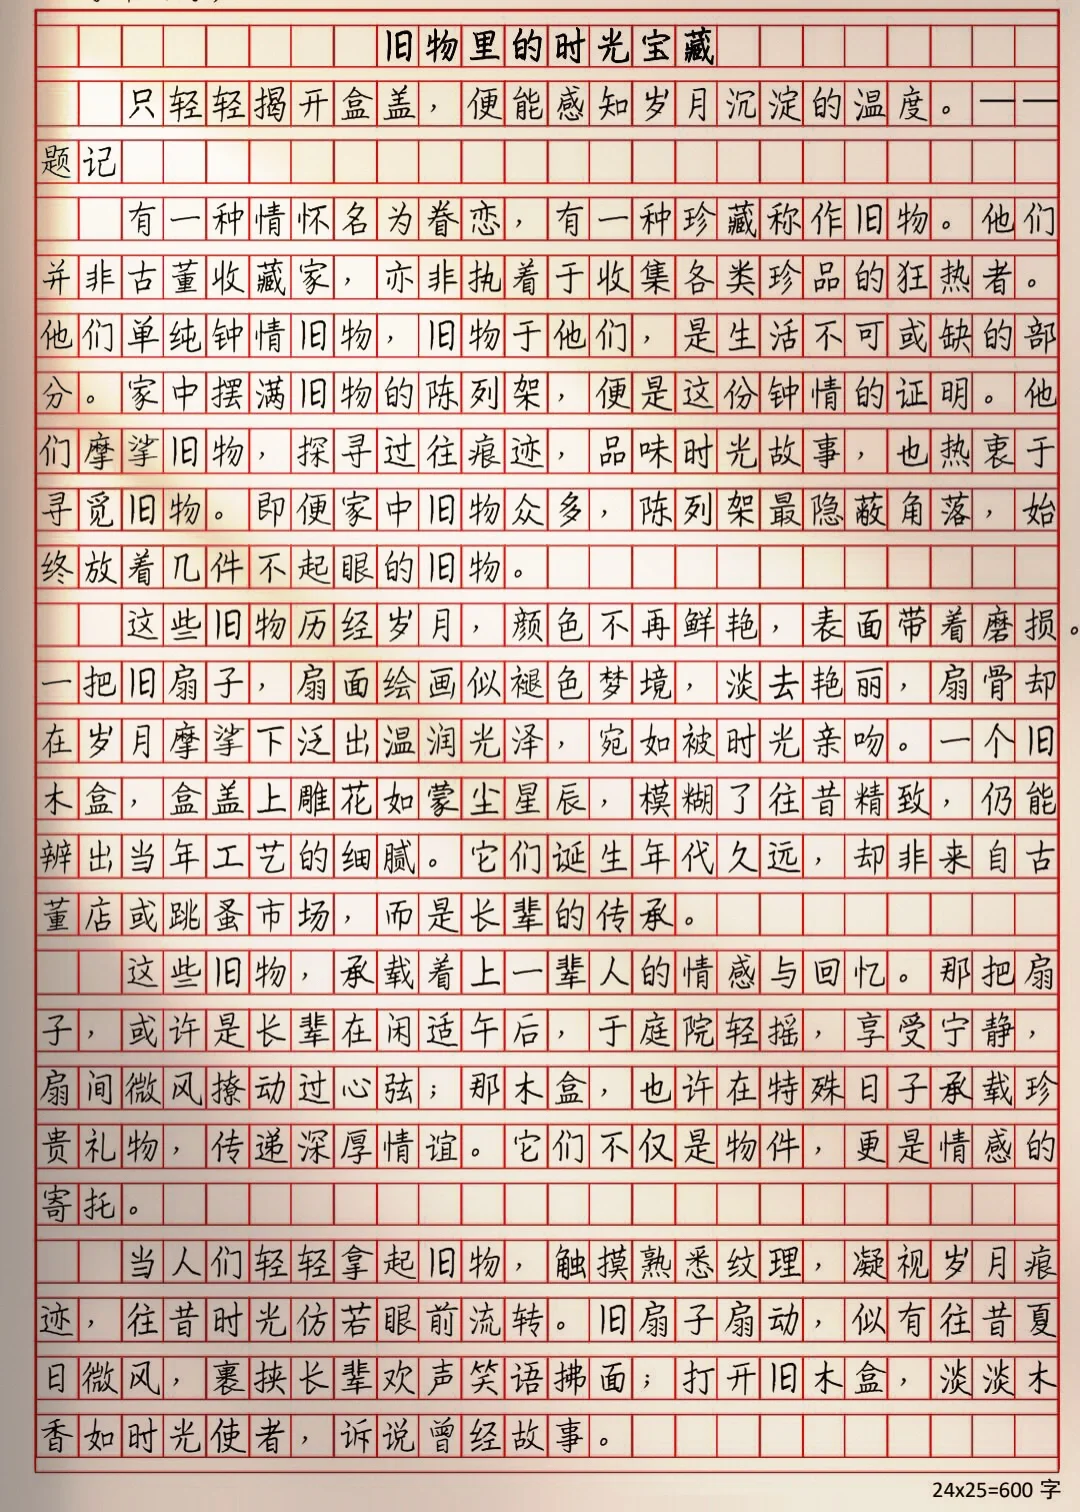 旧物里的时光宝藏
只轻轻揭开盒盖，便能感知岁月沉淀的温度。——
题记
有一种情怀名为眷恋，有一种珍藏称作旧物。他们
并非古董收藏家，亦非执着于收集各类珍品的狂热者。
他们单纯钟情旧物，旧物于他们，是生活不可或缺的部
分。家中摆满旧物的陈列架，便是这份钟情的证明。他
们摩挲旧物，探寻过往痕迹，品味时光故事，也热衷于
寻觅旧物。即便家中旧物众多，陈列架最隐蔽角落，始
终放着几件不起眼的旧物。
这些旧物历经岁月，颜色不再鲜艳，表面带着磨损。
一把旧扇子，扇面绘画似褪色梦境，淡去艳丽，扇骨却
在岁月摩挲下泛出温润光泽，宛如被时光亲吻。一个旧
木盒，盒盖上雕花如蒙尘星辰，模糊了往昔精致，仍能
辨出当年工艺的细腻。它们诞生年代久远，却非来自古
董店或跳蚤市场，而是长辈的传承。
这些旧物，承载着上一辈人的情感与回忆。那把扇
子，或许是长辈在闲适午后，于庭院轻摇，享受宁静，
扇间微风撩动过心弦；那木盒，也许在特殊日子承载珍
贵礼物，传递深厚情谊。它们不仅是物件，更是情感的
寄托。
当人们轻轻拿起旧物，触摸熟悉纹理，凝视岁月痕
迹，往昔时光仿若眼前流转。旧扇子扇动，似有往昔夏
日微风，裹挟长辈欢声笑语拂面；打开旧木盒，淡淡木
香如时光使者，诉说曾经故事。
24x25=600 字